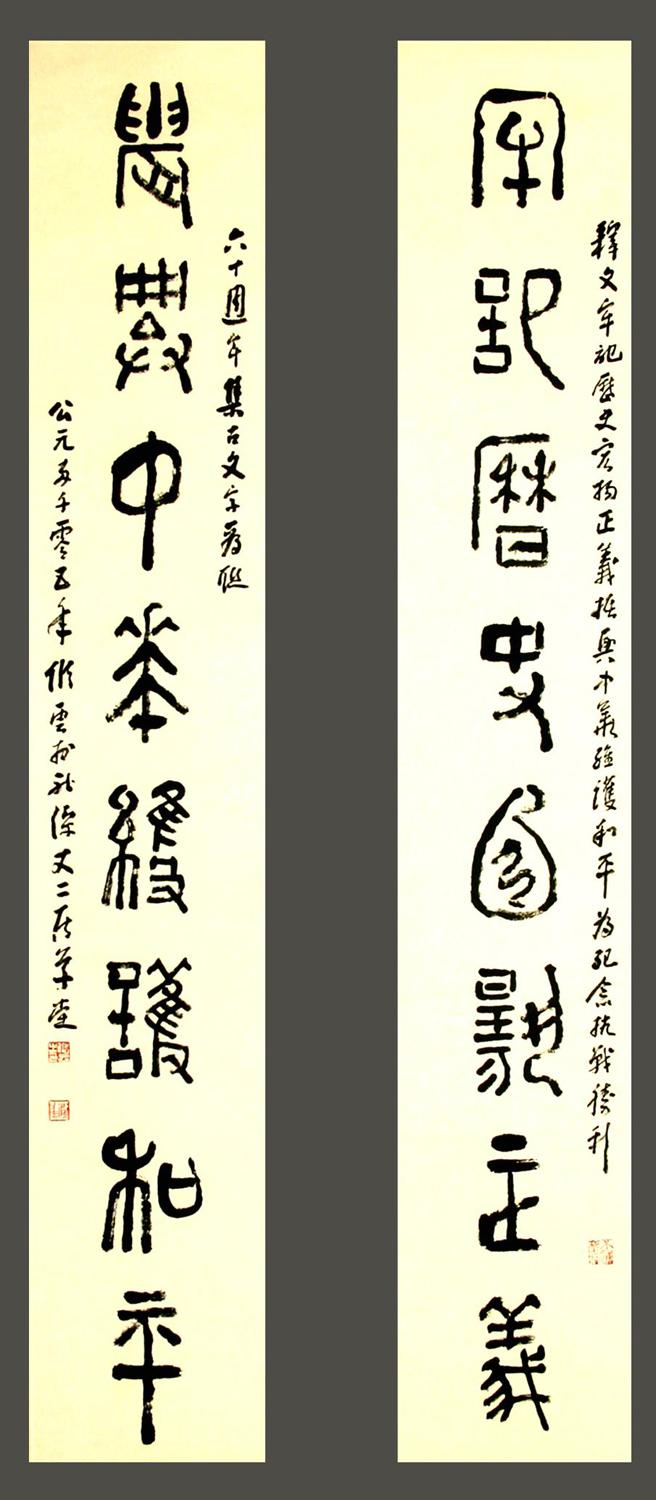 釋文牢記歷史宏揚正義振興中華維護和平為紀念抗戰勝利
牢記曆史宏揚正義
六十週年集古文字為聯
振興中華維護和平
公元二千零五年雲於丈二草堂